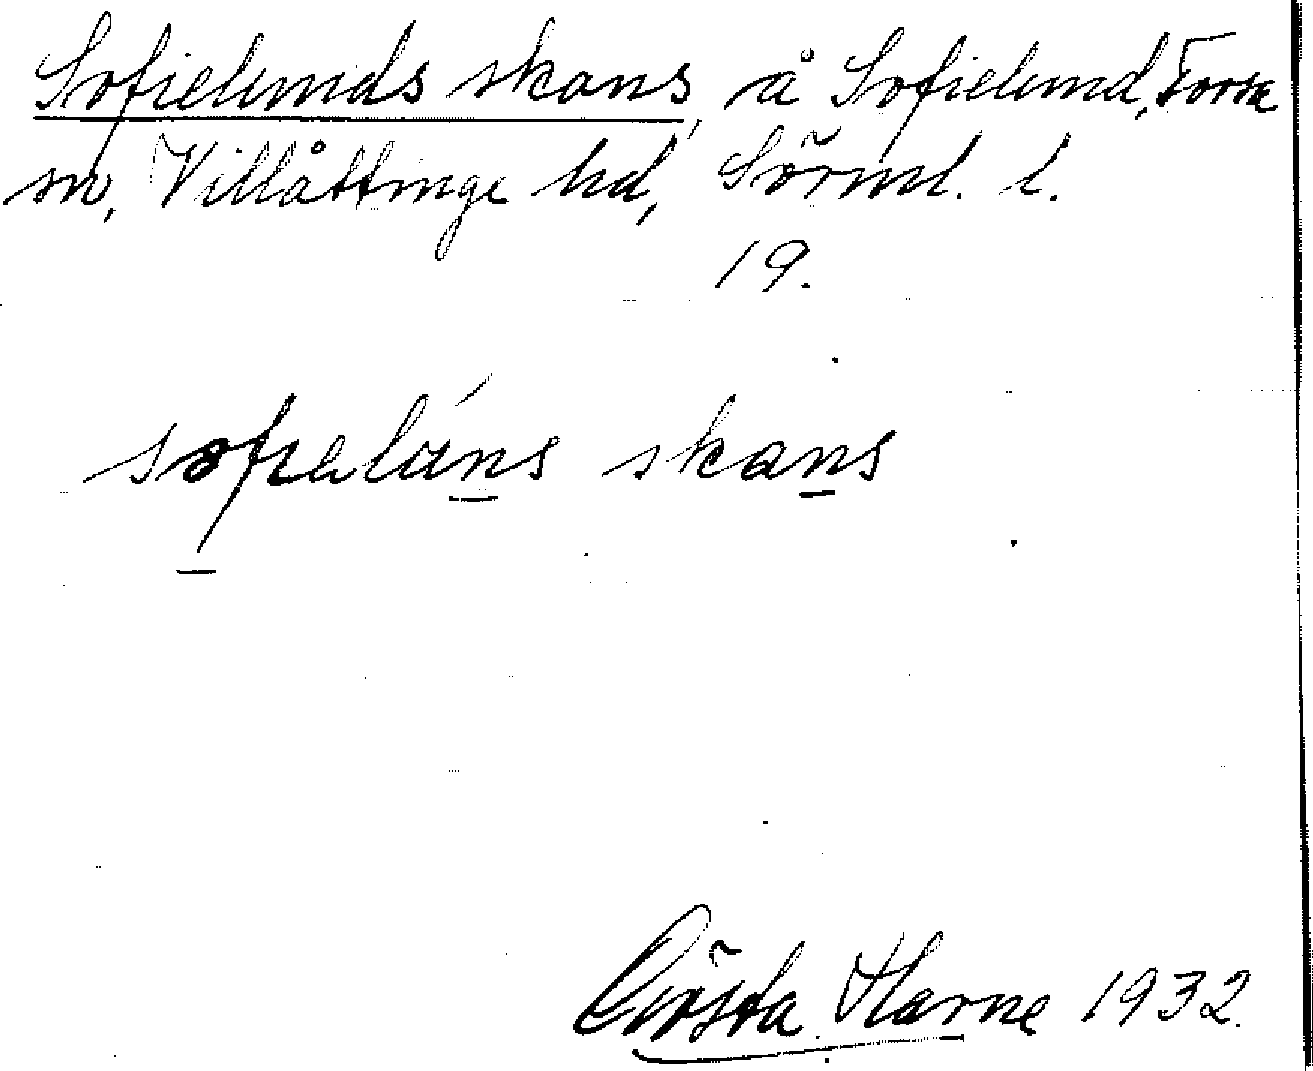 Sofielunds skans, å Sofielund, Forssa
sn, Villåttinge hd, Sörml. l.
19.
skans
Gösta Harne 1932.